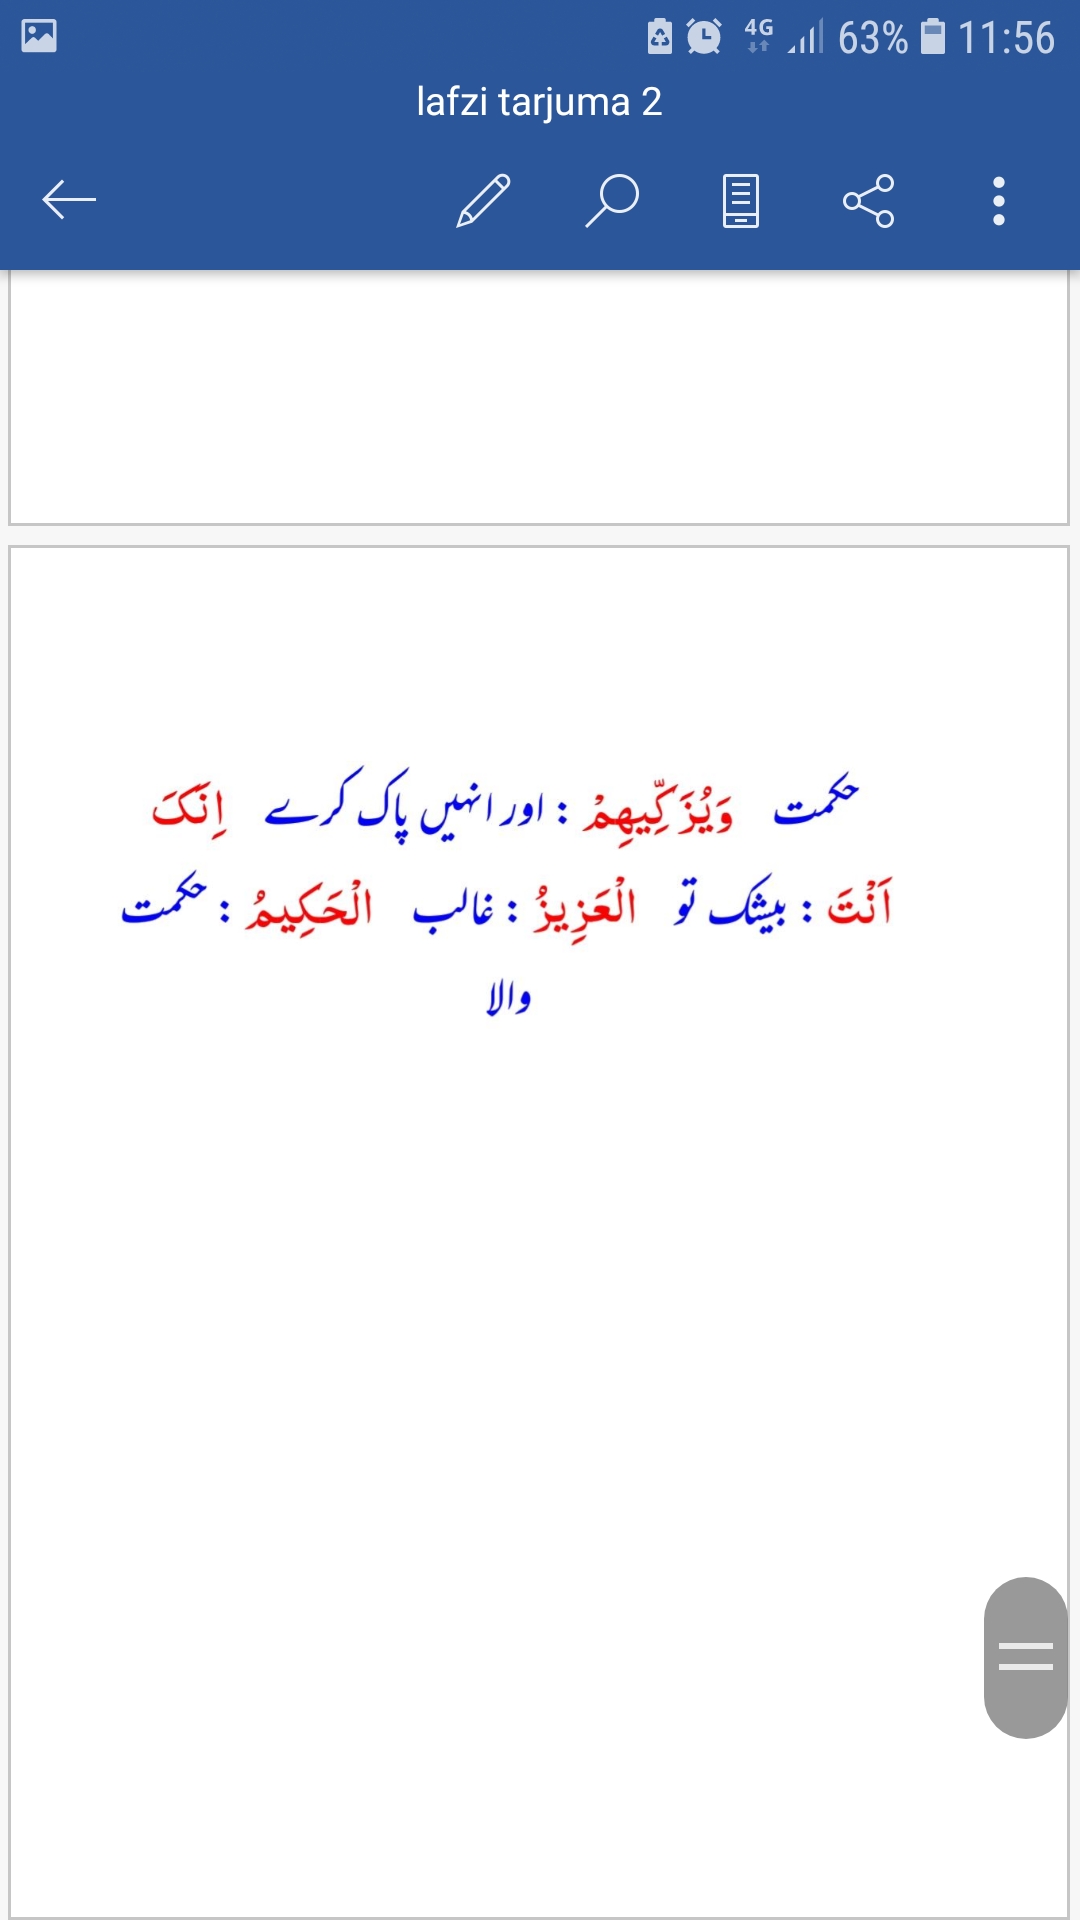 4G 63% 11:56
lafzi tarjuma 2
حکمت وَيُزَكِّيهِمْ : اور انہیں پاک کرے اِنَّکَ
اَنْتَ : بیشک تو الْعَزِيزُ : غالب الْحَكِيمُ : حکمت
والا